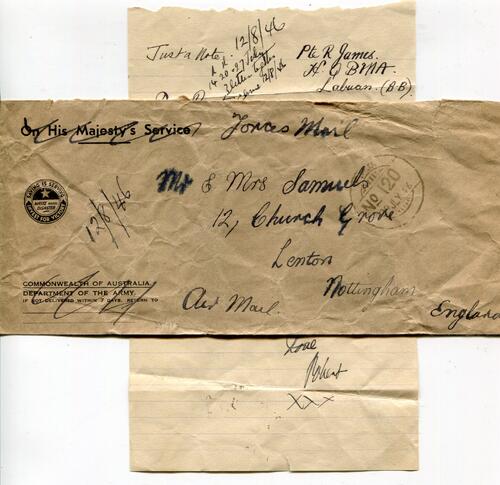 Just a Note. 12/8/46
Pte R James.
H Q BMA.
Labuan. (B.B)
12/8/46
On His Majesty's Service
Forces Mail
SAVING IS SERVICE
Mr & Mrs Samuels
12, Church Grove
Lenton
Nottingham
England
12/8/46
No 20
COMMONWEALTH OF AUSTRALIA.
DEPARTMENT OF THE ARMY.
IF NOT DELIVERED WITHIN 7 DAYS, RETURN TO
Air Mail.
Love
Robert
XXX